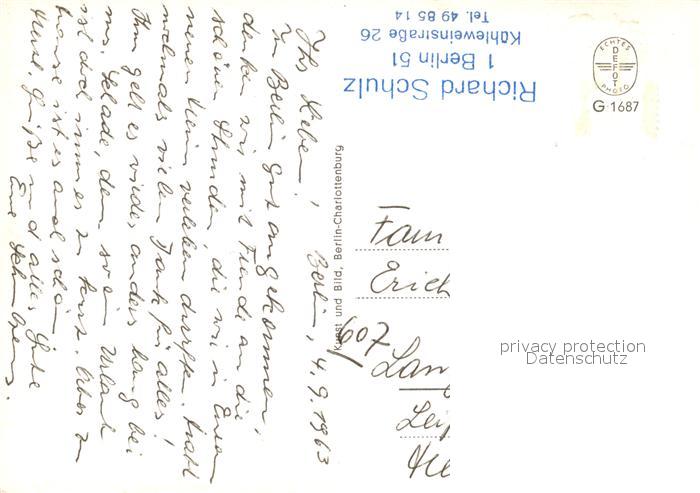 Ihr Lieben! Berlin, 4.9.1963
In Berlin gut angekommen,
denken wir mit Freude an die
schönen Stunden, die wir in Eurem
neuen Heim verleben durften. Noch
mals vielen Dank für alles!
Nun geht es wieder anders lang bei
uns. Schade, denn so ein Urlaub
ist doch immer zu kurz. Aber zu
hause ist es auch schön
Grüße und alles Gute
Eure
Kunst und Bild, Berlin-Charlottenburg
Richard Schulz
1 Berlin 51
Kühleweinstraße 26
Tel. 49 85 14
ECHTES
DEFOT
PHOTO
G 1687
Fam
Erich
607
Lan
Lei
privacy protection
Datenschutz